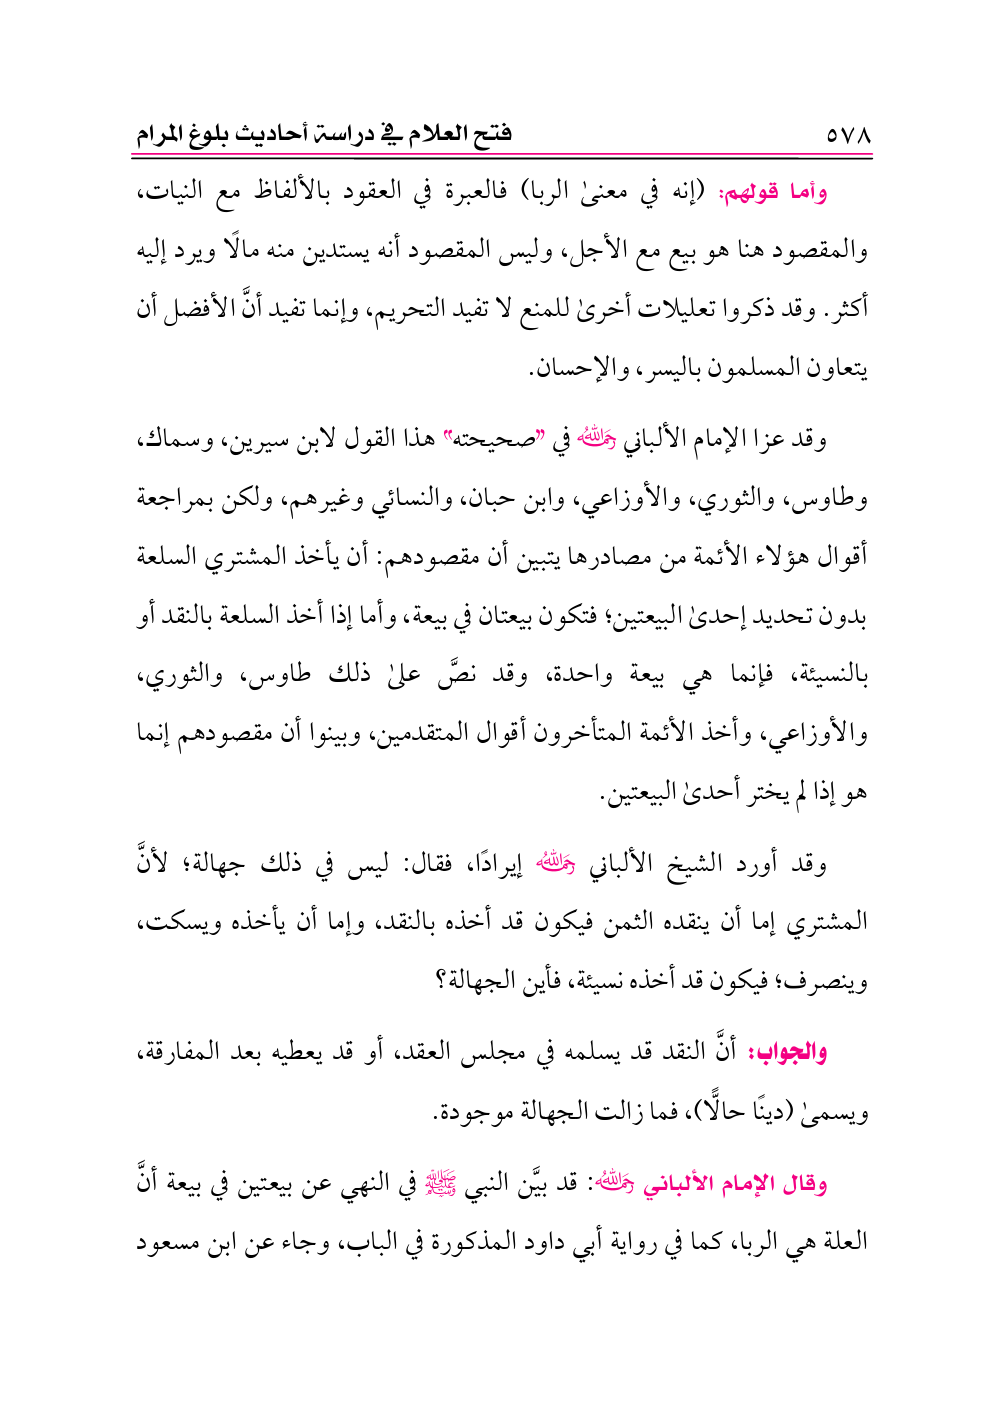 ٥٧٨ فتح العلام في دراسة أحاديث بلوغ المرام
وأما قولهم: (إنه في معنىٰ الربا) فالعبرة في العقود بالألفاظ مع النيات،
والمقصود هنا هو بيع مع الأجل، وليس المقصود أنه يستدين منه مالًا ويرد إليه
أكثر. وقد ذكروا تعليلات أخرىٰ للمنع لا تفيد التحريم، وإنما تفيد أنَّ الأفضل أن
يتعاون المسلمون باليسر، والإحسان.
وقد عزا الإمام الألباني رَحِمَهُ اللهُ في "صحيحته" هذا القول لابن سيرين، وسماك،
وطاوس، والثوري، والأوزاعي، وابن حبان، والنسائي وغيرهم، ولكن بمراجعة
أقوال هؤلاء الأئمة من مصادرها يتبين أن مقصودهم: أن يأخذ المشتري السلعة
بدون تحديد إحدىٰ البيعتين؛ فتكون بيعتان في بيعة، وأما إذا أخذ السلعة بالنقد أو
بالنسيئة، فإنما هي بيعة واحدة، وقد نصَّ علىٰ ذلك طاوس، والثوري،
والأوزاعي، وأخذ الأئمة المتأخرون أقوال المتقدمين، وبينوا أن مقصودهم إنما
هو إذا لم يختر أحدىٰ البيعتين.
وقد أورد الشيخ الألباني رَحِمَهُ اللهُ إيرادًا، فقال: ليس في ذلك جهالة؛ لأنَّ
المشتري إما أن ينقده الثمن فيكون قد أخذه بالنقد، وإما أن يأخذه ويسكت،
وينصرف؛ فيكون قد أخذه نسيئة، فأين الجهالة؟
والجواب: أنَّ النقد قد يسلمه في مجلس العقد، أو قد يعطيه بعد المفارقة،
ويسمىٰ (دينًا حالًّا)، فما زالت الجهالة موجودة.
وقال الإمام الألباني رَحِمَهُ اللهُ: قد بيَّن النبي ﷺ في النهي عن بيعتين في بيعة أنَّ
العلة هي الربا، كما في رواية أبي داود المذكورة في الباب، وجاء عن ابن مسعود